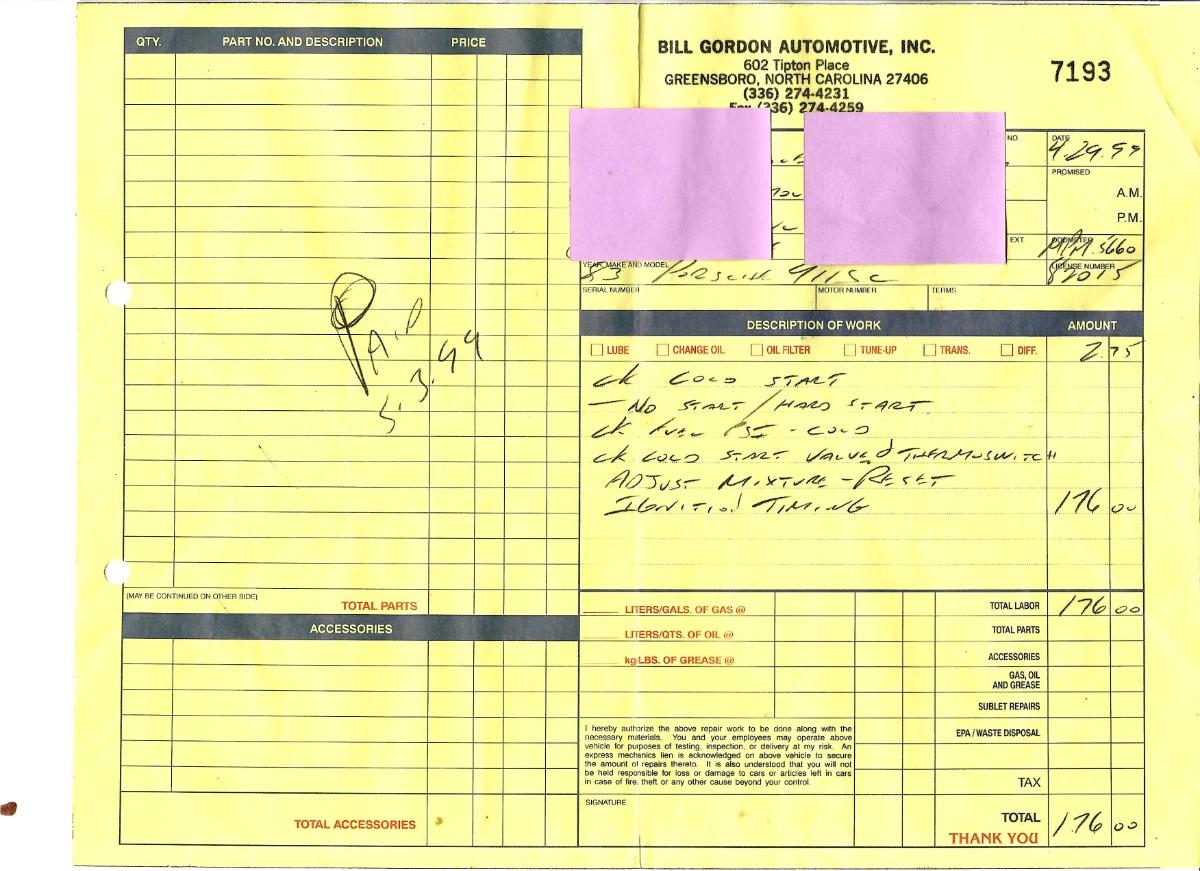 QTY. PART NO. AND DESCRIPTION PRICE
BILL GORDON AUTOMOTIVE, INC.
602 Tipton Place
GREENSBORO, NORTH CAROLINA 27406
(336) 274-4231
Fax (336) 274-4259
7193
NO.
DATE
4.29.99
PROMISED
A.M.
P.M.
EXT.
ODOMETER
5660
YEAR, MAKE AND MODEL
83 PORSCHE 911SC
LICENSE NUMBER
SERIAL NUMBER MOTOR NUMBER TERMS
DESCRIPTION OF WORK AMOUNT
LUBE CHANGE OIL OIL FILTER TUNE-UP TRANS. DIFF. 2.75
CK COLD START
— NO START / HARD START
CK FUEL PSI - COLD
CK COLD START VALVE & THERMOSWITCH
ADJUST MIXTURE - RESET
IGNITION TIMING 176 00
PAID
5.3.99
(MAY BE CONTINUED ON OTHER SIDE)
TOTAL PARTS
ACCESSORIES
TOTAL ACCESSORIES
LITERS/GALS. OF GAS @
LITERS/QTS. OF OIL @
kg/LBS. OF GREASE @
TOTAL LABOR 176 00
TOTAL PARTS
ACCESSORIES
GAS, OIL
AND GREASE
SUBLET REPAIRS
EPA / WASTE DISPOSAL
TAX
TOTAL 176 00
THANK YOU
I hereby authorize the above repair work to be done along with the
necessary materials. You and your employees may operate above
vehicle for purposes of testing, inspection, or delivery at my risk. An
express mechanics lien is acknowledged on above vehicle to secure
the amount of repairs thereto. It is also understood that you will not
be held responsible for loss or damage to cars or articles left in cars
in case of fire, theft or any other cause beyond your control.
SIGNATURE